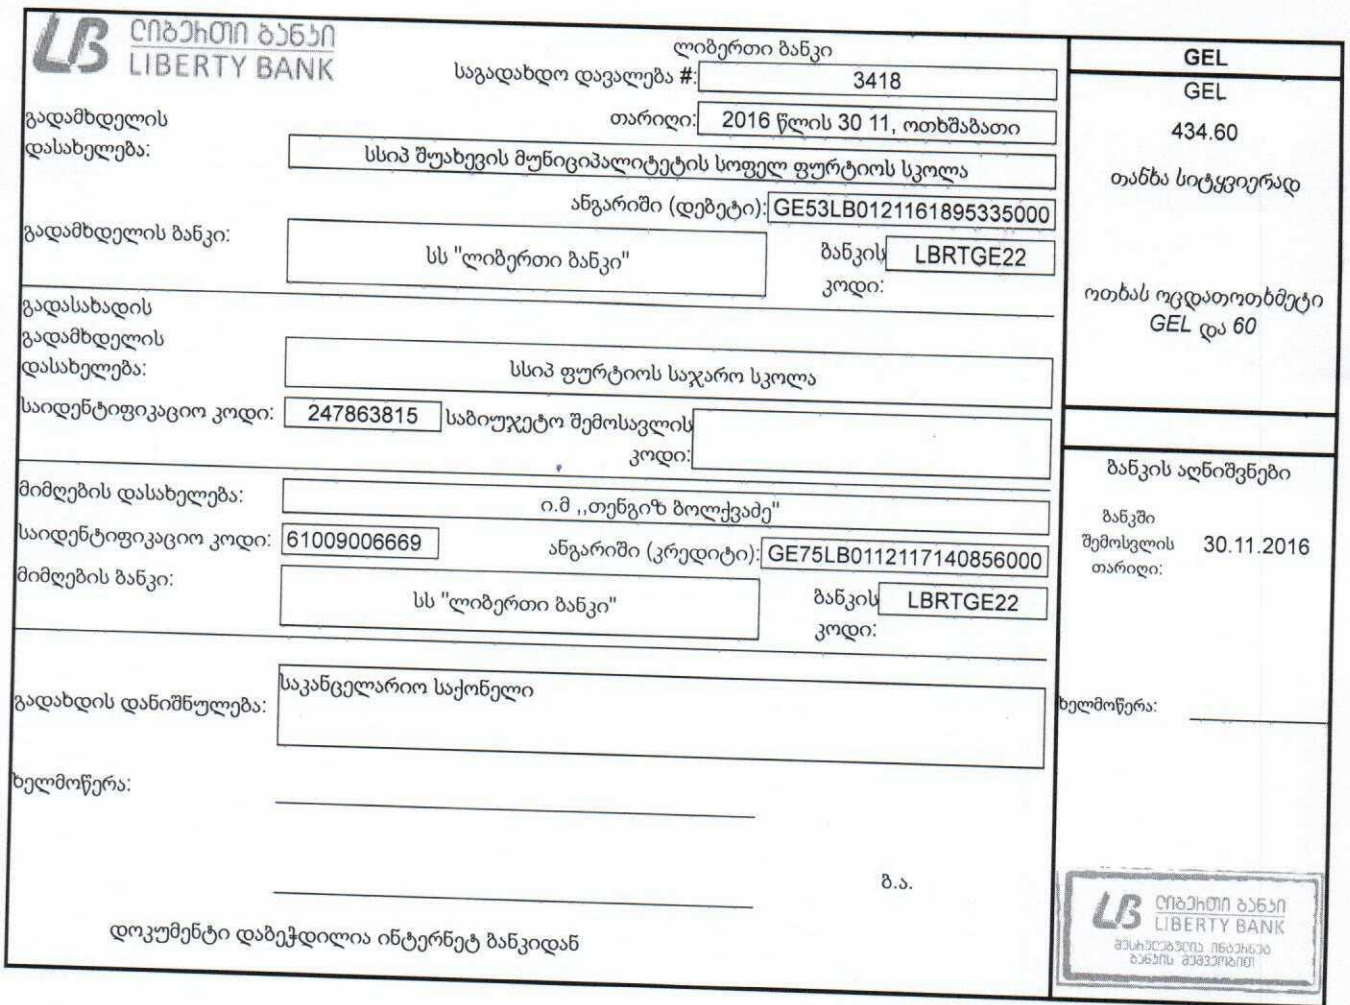 ლიბერთი ბანკი
LIBERTY BANK
ლიბერთი ბანკი
საგადახდო დავალება #: 3418
თარიღი: 2016 წლის 30 11, ოთხშაბათი
გადამხდელის
დასახელება: სსიპ შუახევის მუნიციპალიტეტის სოფელ ფურტიოს სკოლა
ანგარიში (დებეტი): GE53LB0121161895335000
გადამხდელის ბანკი: სს "ლიბერთი ბანკი" ბანკის LBRTGE22
კოდი:
გადასახადის
გადამხდელის
დასახელება: სსიპ ფურტიოს საჯარო სკოლა
საიდენტიფიკაციო კოდი: 247863815 საბიუჯეტო შემოსავლის
კოდი:
მიმღების დასახელება: ი.მ ,,თენგიზ ბოლქვაძე"
საიდენტიფიკაციო კოდი: 61009006669 ანგარიში (კრედიტი): GE75LB0112117140856000
მიმღების ბანკი: სს "ლიბერთი ბანკი" ბანკის LBRTGE22
კოდი:
გადახდის დანიშნულება: საკანცელარიო საქონელი
ხელმოწერა:
ბ.ა.
დოკუმენტი დაბეჭდილია ინტერნეტ ბანკიდან
GEL
GEL
434.60
თანხა სიტყვიერად
ოთხას ოცდათოთხმეტი
GEL და 60
ბანკის აღნიშვნები
ბანკში
შემოსვლის 30.11.2016
თარიღი:
ხელმოწერა:
ლიბერთი ბანკი
LIBERTY BANK
შესრულებულია ინტერნეტ
ბანკის მეშვეობით